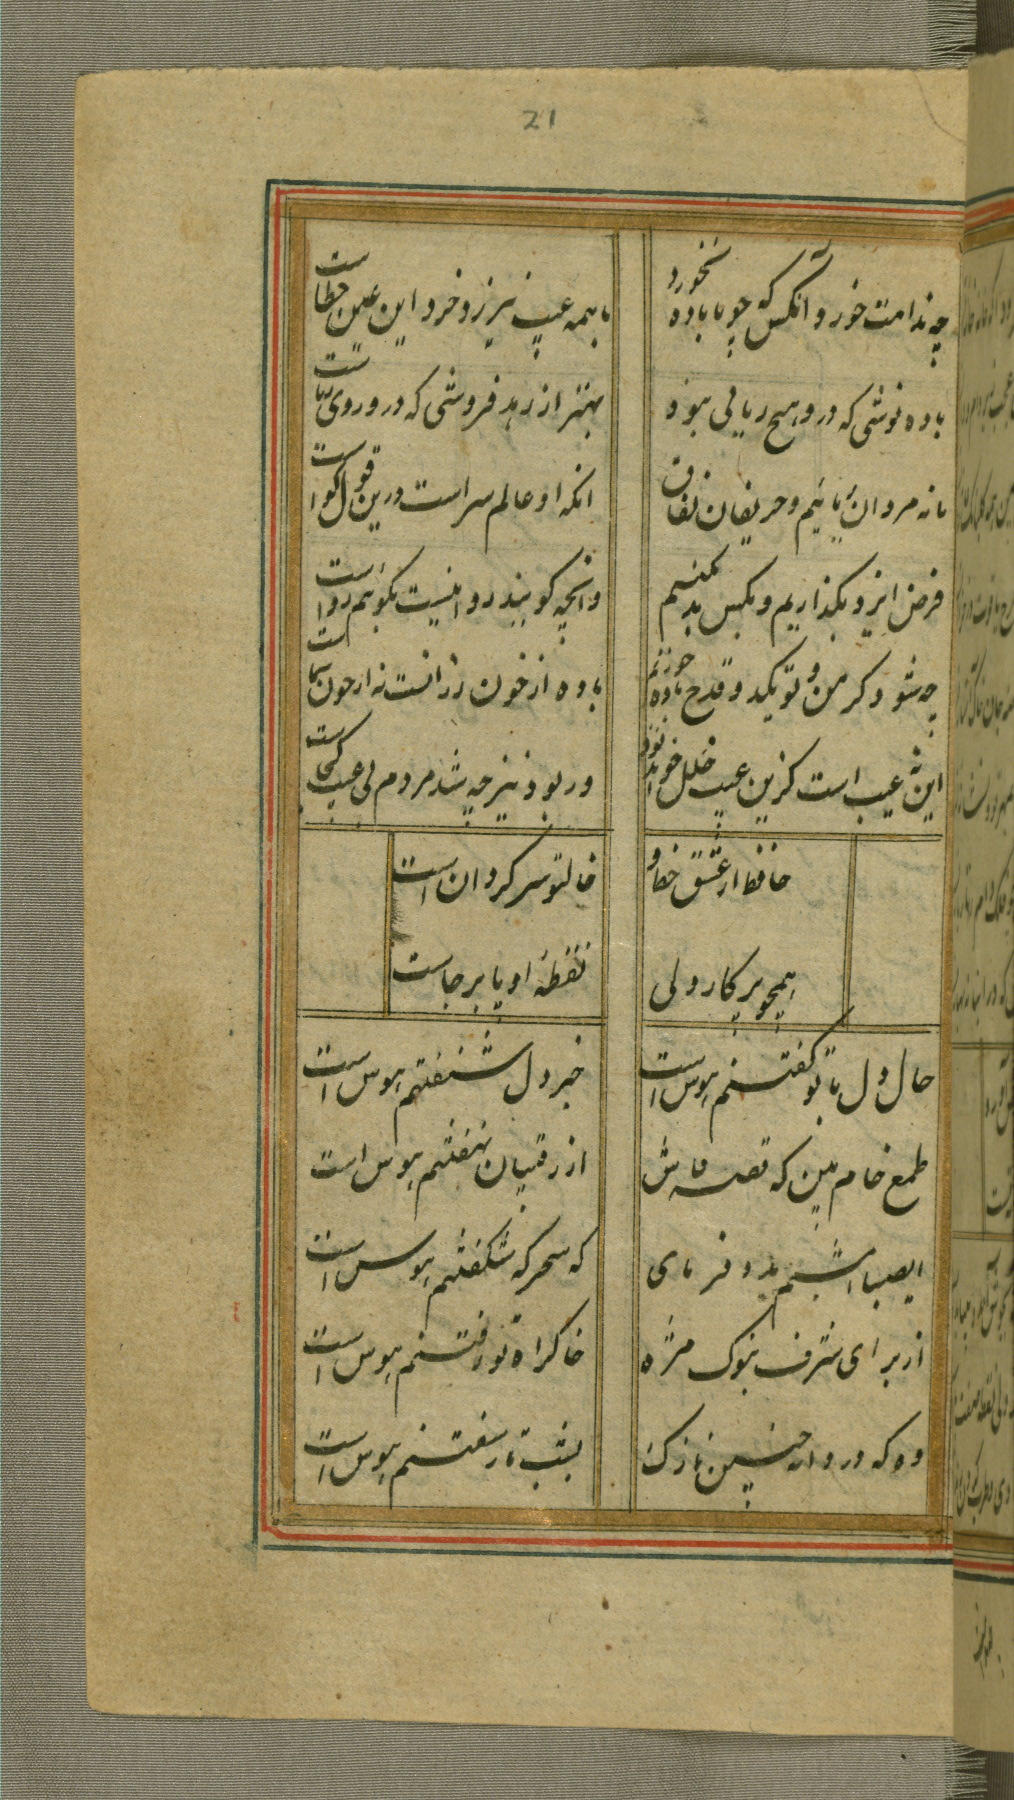 21
چه ندامت خورد آنکس که چو ما باده نخورد
با همه عیب نیرزد خرد این عین خطاست
باده نوشی که درو هیچ ریائی نبود
بهتر از زهد فروشی که درو روی ریاست
ما نه مردان ریائیم و حریفان نفاق
انکه او عالم سراست درین قول کواست
فرض ایزد بکذاریم و بکس بد نکنیم
وانچه کویند روا نیست بکوئیم رواست
چه شود کر من و تو یکدو قدح باده خوریم
باده از خون رزانست نه از خون شماست
این نه عیب است کزین عیب خلل خواهد بود
ور بود نیز چه شد مردم بی عیب کجاست
حافظ از عشق خط و
خال تو سرکردان است
همچو پرکار ولی
نقطه او پا برجاست
حال دل با تو کفتنم هوس است
خبر دل شنفتنم هوس است
طمع خام بین که قصه فاش
از رقیبان نهفتنم هوس است
ایصبا امشبم مدد فرمای
که سحرکه شکفتنم هوس است
از برای شرف بنوک مژه
خاک راه تو رفتنم هوس است
وه که دردانه چنین نازک
بشب تار سفتنم هوس است